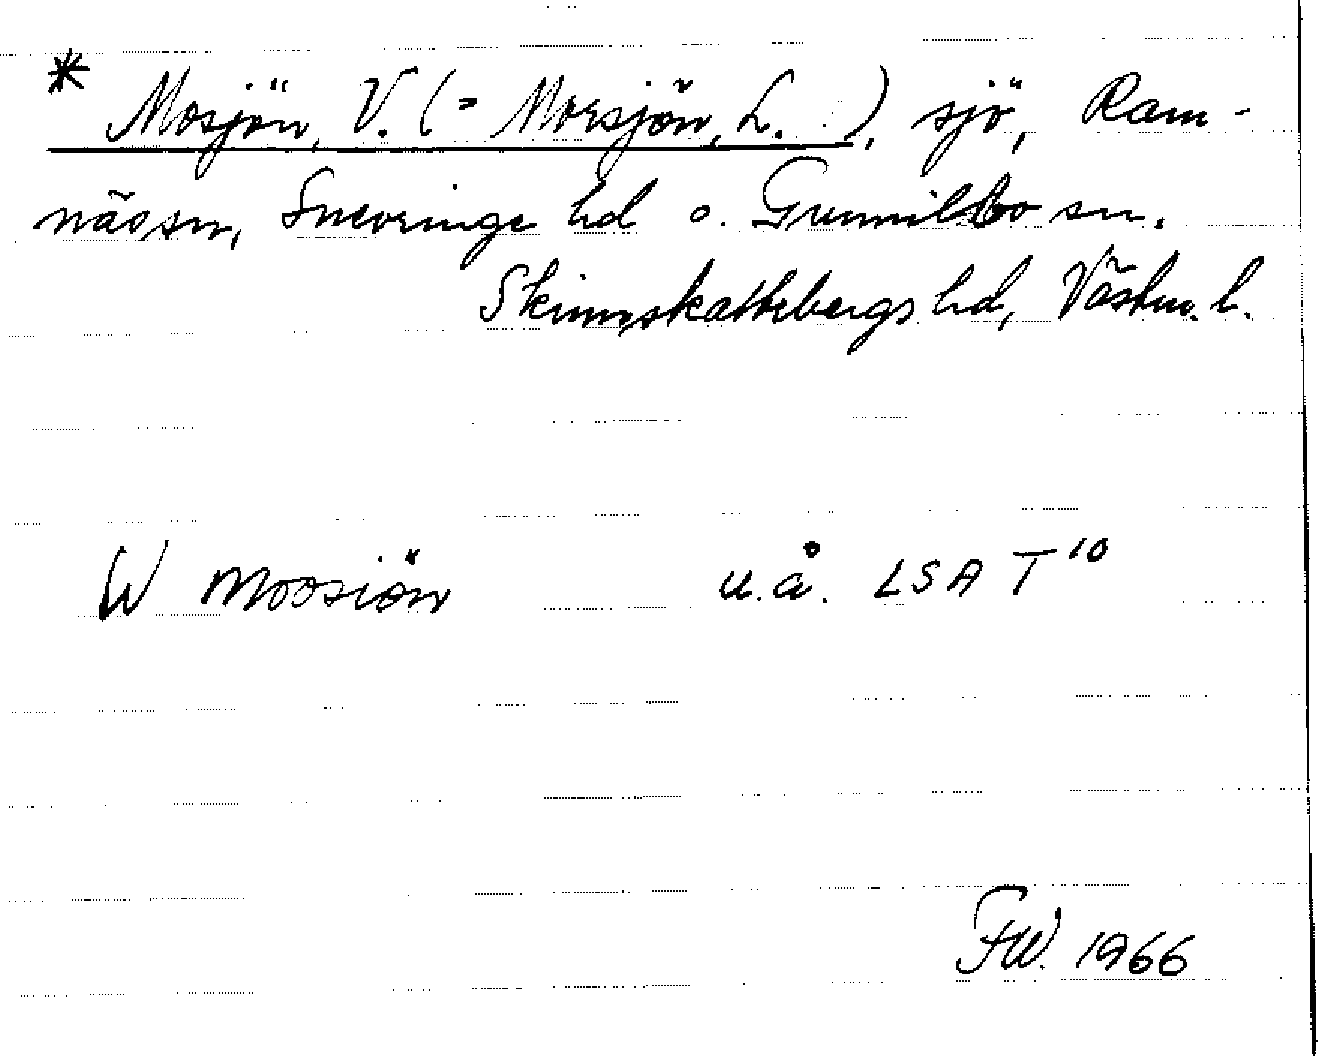 * Mosjön, V. (= Morsjön, L. ), sjö, Ram-
näs sn, Snevringe hd o. Gunnilbo sn.
Skinnskattebergs hd, Västm. l.
W Moosiön u.å. LSA T¹⁰
F.W. 1966